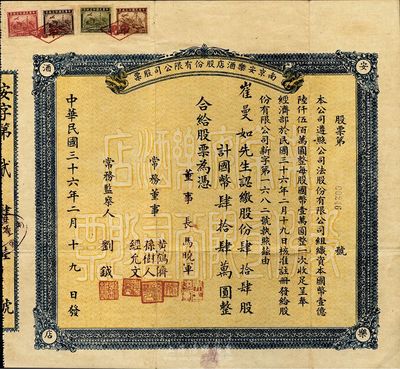 南京安樂酒店股份有限公司股票
安
樂
酒
店
股票第
號
本公司遵照公司法股份有限公司組織資本國幣壹億
陸仟伍佰萬圓整每股國幣壹萬圓整一次收足呈奉
經濟部於民國三十六年二月十九日核准註冊發給股
份有限公司新字第一六八二號執照茲由
崔曼如先生認繳股份肆拾肆股
計國幣肆拾肆萬圓整
合給股票為憑
董事長 馬曉軍
常務董事
黃鶴儕
孫樹人
經允文
常務監察人 劉鉞
中華民國三十六年二月十九日發
安字第貳
號